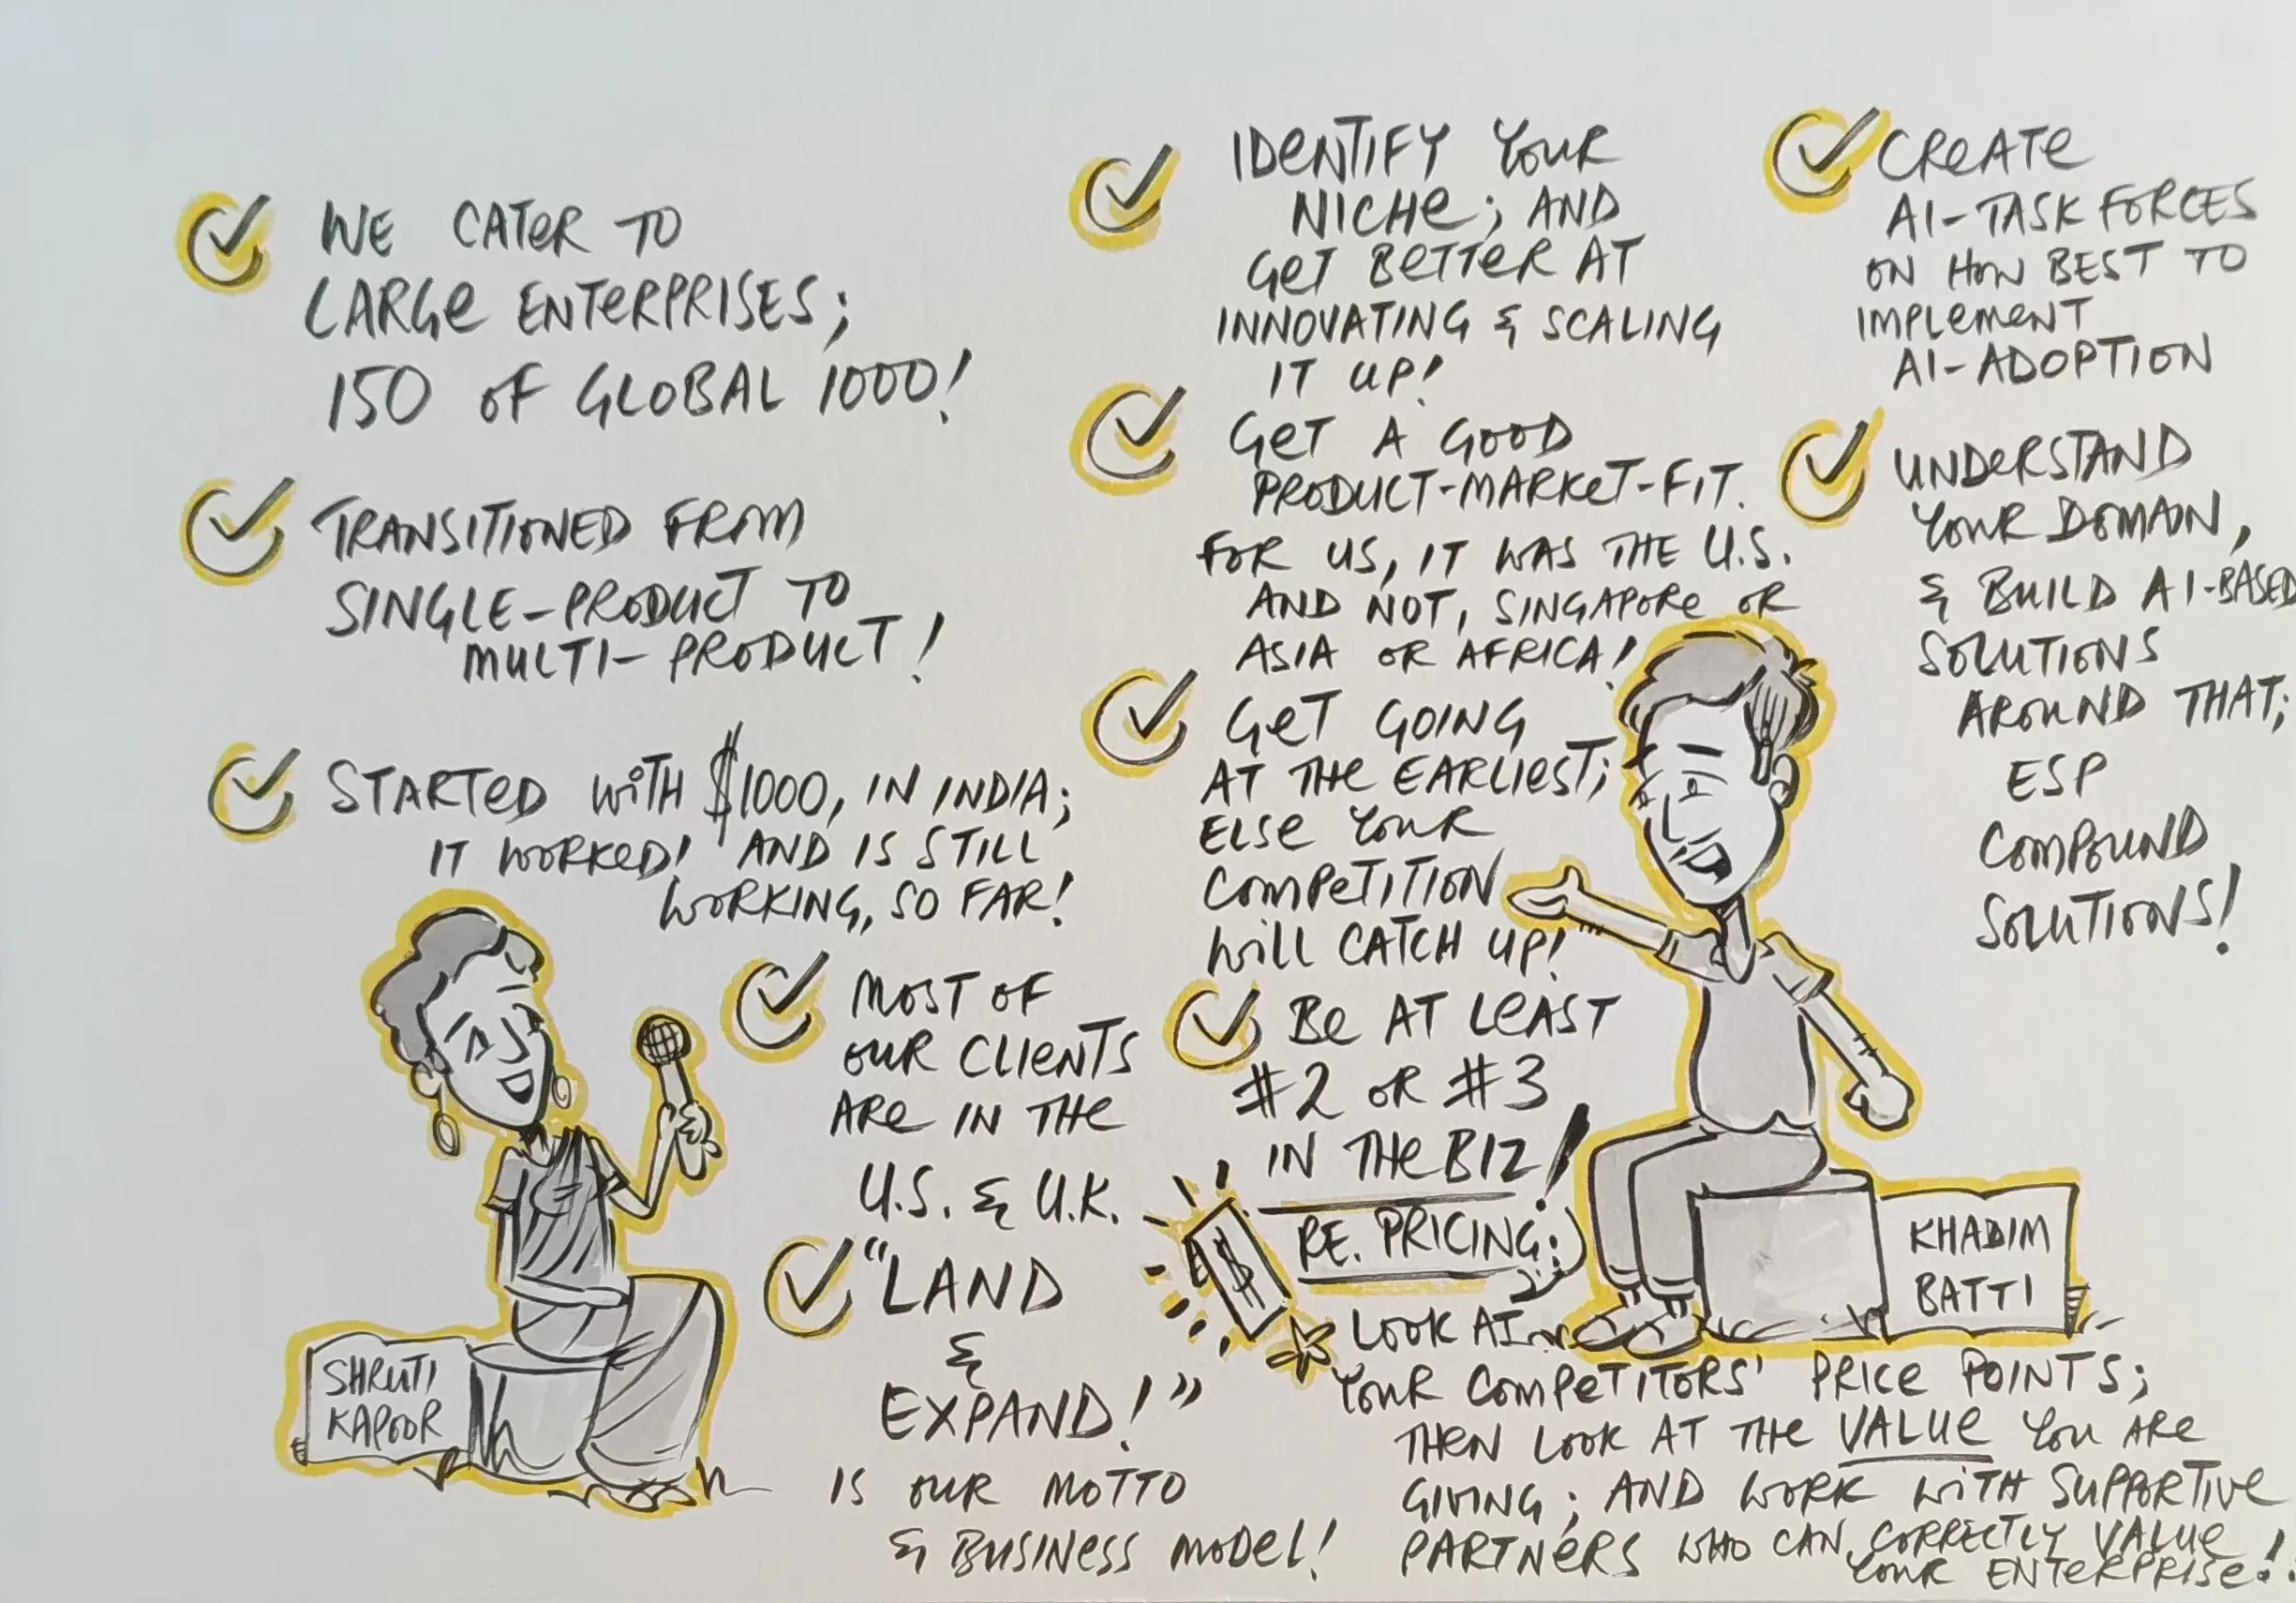 WE CATER TO
LARGE ENTERPRISES;
150 OF GLOBAL 1000!
TRANSITIONED FROM
SINGLE-PRODUCT TO
MULTI-PRODUCT!
STARTED WITH $1000, IN INDIA;
IT WORKED! AND IS STILL
WORKING, SO FAR!
MOST OF
OUR CLIENTS
ARE IN THE
U.S. & U.K.
"LAND
&
EXPAND!"
IS OUR MOTTO
& BUSINESS MODEL!
SHRUTI
KAPOOR
IDENTIFY YOUR
NICHE; AND
GET BETTER AT
INNOVATING & SCALING
IT UP!
GET A GOOD
PRODUCT-MARKET-FIT.
FOR US, IT WAS THE U.S.
AND NOT, SINGAPORE OR
ASIA OR AFRICA!
GET GOING
AT THE EARLIEST;
ELSE YOUR
COMPETITION
WILL CATCH UP!
BE AT LEAST
#2 OR #3
IN THE BIZ!
$
RE. PRICING:
LOOK AT
YOUR COMPETITORS' PRICE POINTS;
THEN LOOK AT THE VALUE YOU ARE
GIVING; AND WORK WITH SUPPORTIVE
PARTNERS WHO CAN CORRECTLY VALUE
YOUR ENTERPRISE!
CREATE
AI-TASK FORCES
ON HOW BEST TO
IMPLEMENT
AI-ADOPTION
UNDERSTAND
YOUR DOMAIN,
& BUILD AI-BASED
SOLUTIONS
AROUND THAT;
ESP
COMPOUND
SOLUTIONS!
KHADIM
BATTI